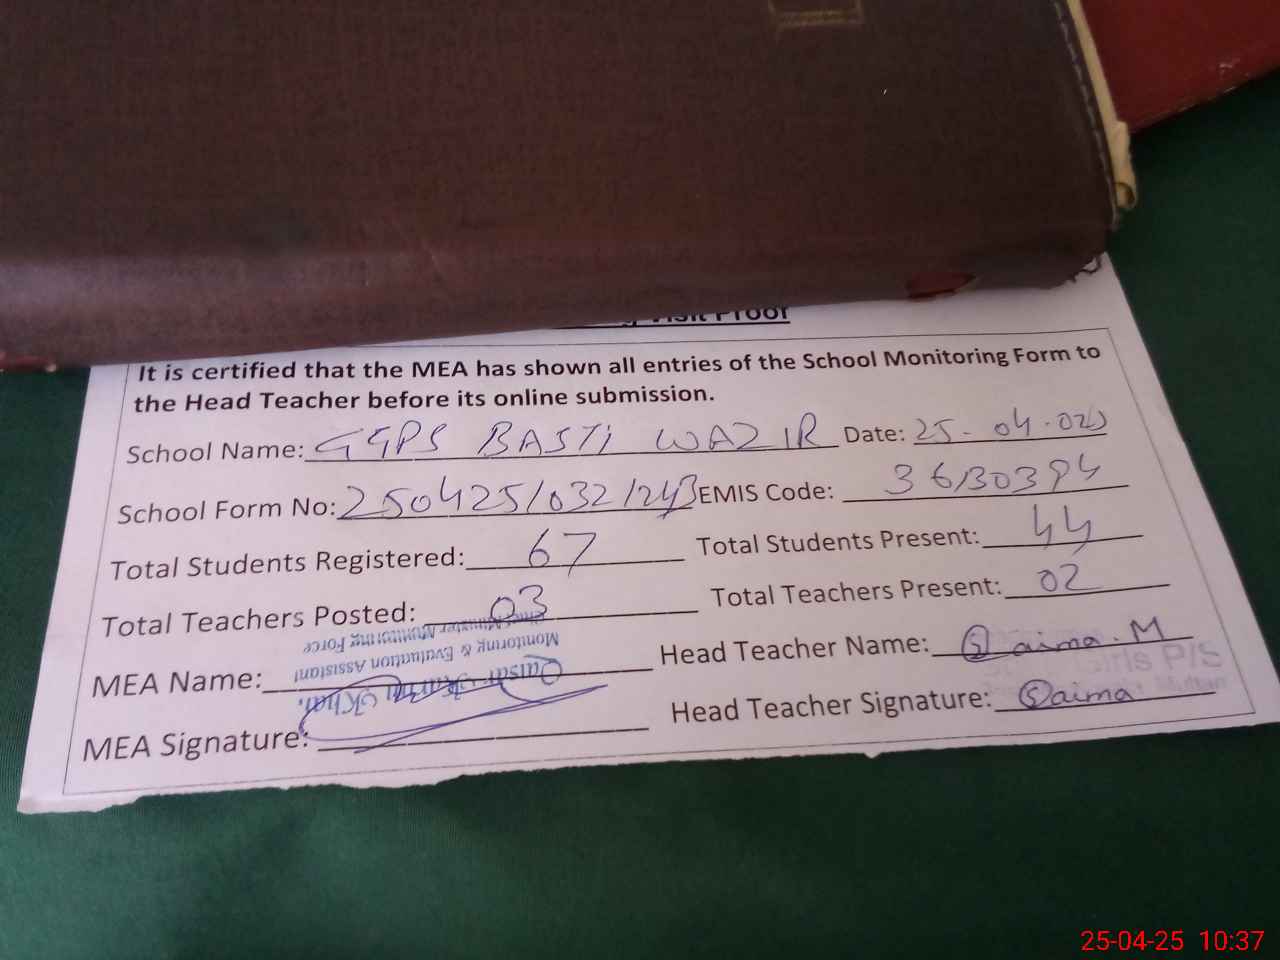 Visit Proof
It is certified that the MEA has shown all entries of the School Monitoring Form to
the Head Teacher before its online submission.
School Name: GGPS BASTI WAZIR Date: 25-04-025
School Form No: 250425/032/1243 EMIS Code: 36130394
Total Students Registered: 67 Total Students Present: 44
Total Teachers Posted: 03 Total Teachers Present: 02
MEA Name: Head Teacher Name: Saima.M
MEA Signature: Head Teacher Signature: Saima
Khan
Monitoring & Evaluation Assistant
Chief Minister Monitoring Force
Girls P/S
25-04-25 10:37